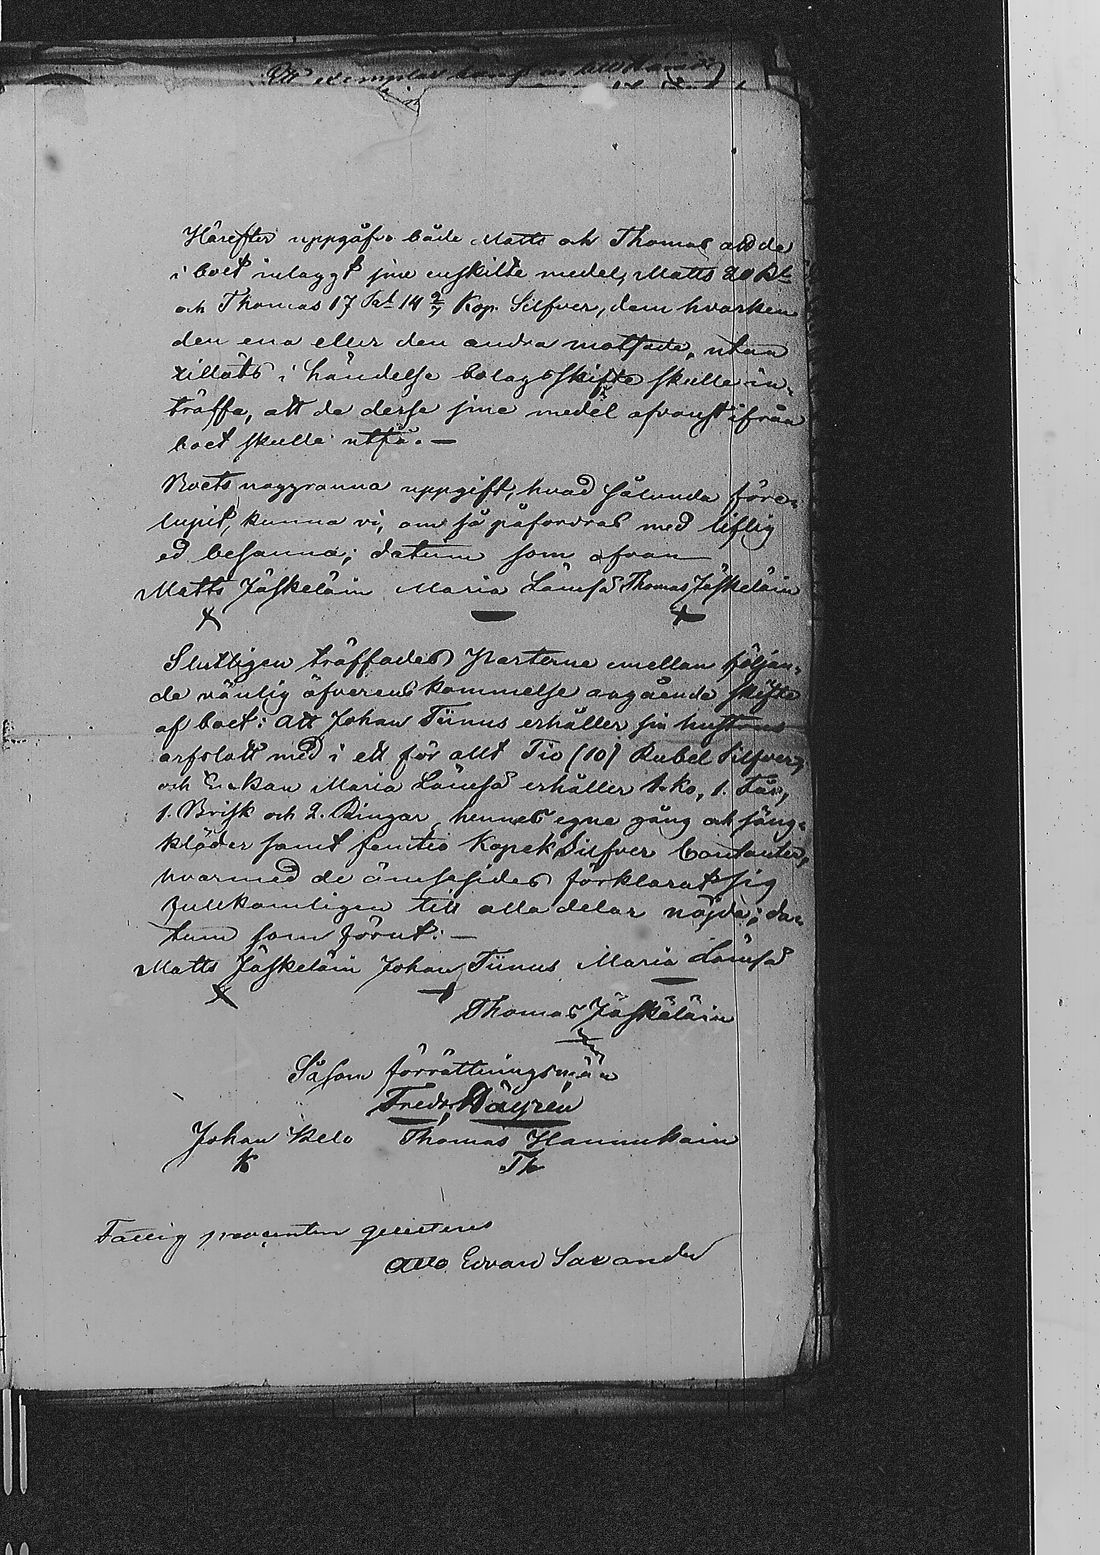 Ett exemplar
Härefter uppgåfvo både Matts och Thomas att de
i boet inlaggt sine enskilte medel, Matts 20 Rbl
och Thomas 17 Rbl 14 2/7 Kop. Silfver, dem hvarken
den ena eller den andra motsade, utan
tilläts i händelse bolagsskifte skulle in-
träffa, att de desse sine medel afvanst ifrån
boet skulle utfå. —
Boets noggranna uppgift, hvad sålunda före-
lupit, kunna vi, om så påfordras med liflig
ed besanna; datum som ofvan
Matts Jäskeläin Maria Lämsä Thomas Jäskeläin
Slutligen träffades Parterne emellan följan-
de vänlig öfverenskommelse angående skifte
af boet: att Johan Tiinus erhåller sin hustrus
arfslott med i ett för allt Tio (10) Rubel Silfver,
och Enkan Maria Lämsä erhåller 1. Ko, 1. Får,
1. Brisk och 2. Ringar, hennes egne gång och säng-
kläder samt femtio Kopek Silfver Contanter,
hvarmed de ömsesides förklarat sig
fullkomligen till alla delar nöjde; da-
tum som förut: —
Matts Jäskeläin Johan Tiinus Maria Lämsä
Thomas Jäskäläin
Såsom förrättningsmän
Fredr.
Johan Kelo Thomas Hannukain
K Th
Fattig procenten qvitteras
Edvard Savander